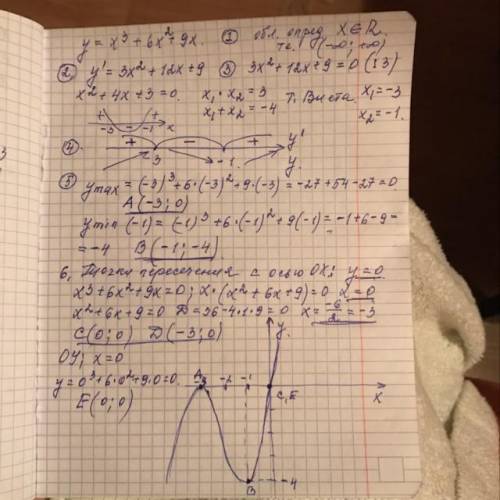 y = x³ + 6x² + 9x. ① обл. опред X∈R.
т.е. (-∞; +∞)
② y' = 3x² + 12x + 9 ③ 3x² + 12x + 9 = 0 (:3)
x² + 4x + 3 = 0. x₁ · x₂ = 3 т. Виета x₁ = -3
x₁ + x₂ = -4 x₂ = -1.
+ -3 - -1 + x
④ + - + y'
-3 -1 y
⑤ ymax = (-3)³ + 6·(-3)² + 9·(-3) = -27 + 54 - 27 = 0
A(-3; 0)
ymin (-1) = (-1)³ + 6·(-1)² + 9(-1) = -1 + 6 - 9 =
= -4 B(-1; -4)
6. Точки пересечения с осью OX: y = 0
x³ + 6x² + 9x = 0; x·(x² + 6x + 9) = 0 x = 0
x² + 6x + 9 = 0 D = 36 - 4·1·9 = 0 x = -6/2 = -3
C(0; 0) D(-3; 0)
OY: x = 0
y = 0³ + 6·0² + 9·0 = 0.
E(0; 0)
y
A -3 -2 -1 C,E x
B -4